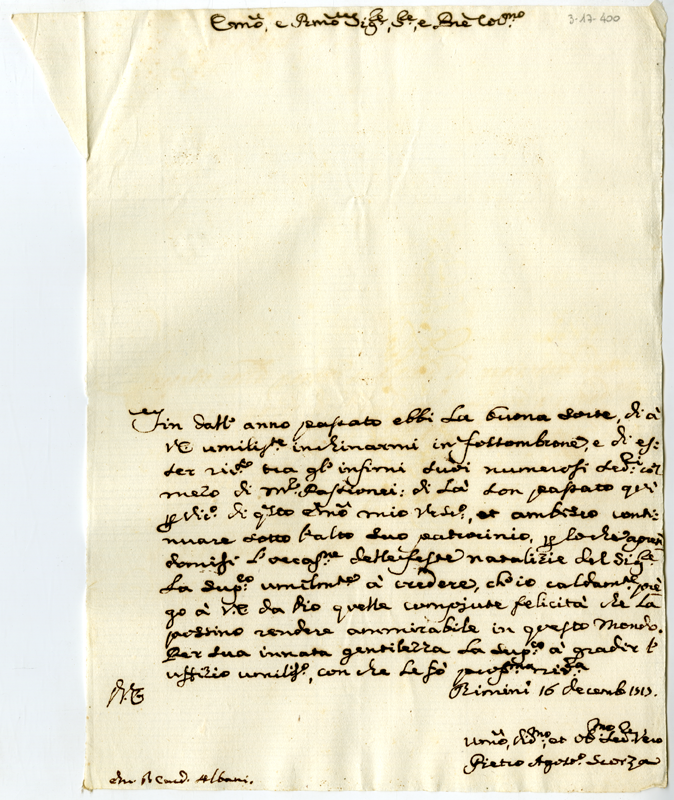 3-17-400
Emõ, e Rmõ Sig.re, Sr.e, e Prñe Col.mo
Fin dall' anno passato ebbi la buona sorte, di à
VE umilis.te inchinarmi in fossombrone, e di es:
ser ric.to tra gl' infimi suoi numerosi Ser.ri col
mezo di Mr. Passionei: di là son passato quì
di q̃sto Emõ mio Vesc.o, et ambisco conti:
nuare sotto l'alto suo patrocinio, lo che
domisi l'occas.ne delle feste natalizie del Sig.re
La sup.co umilm.te à credere, ch'io caldam.te prie
go à VE da Dio quelle compiute felicità che La
possino rendere ammirabile in questo Mondo.
Per sua innata gentilezza La sup.co à gradir l'
uffizio umilis.o, con che le fò
VE
Rimini 16 decemb 1713.
Umõ, et Ob.mo Ser. Vero
Pietro Agost.o Scorza
Em. S. Card. Albani.